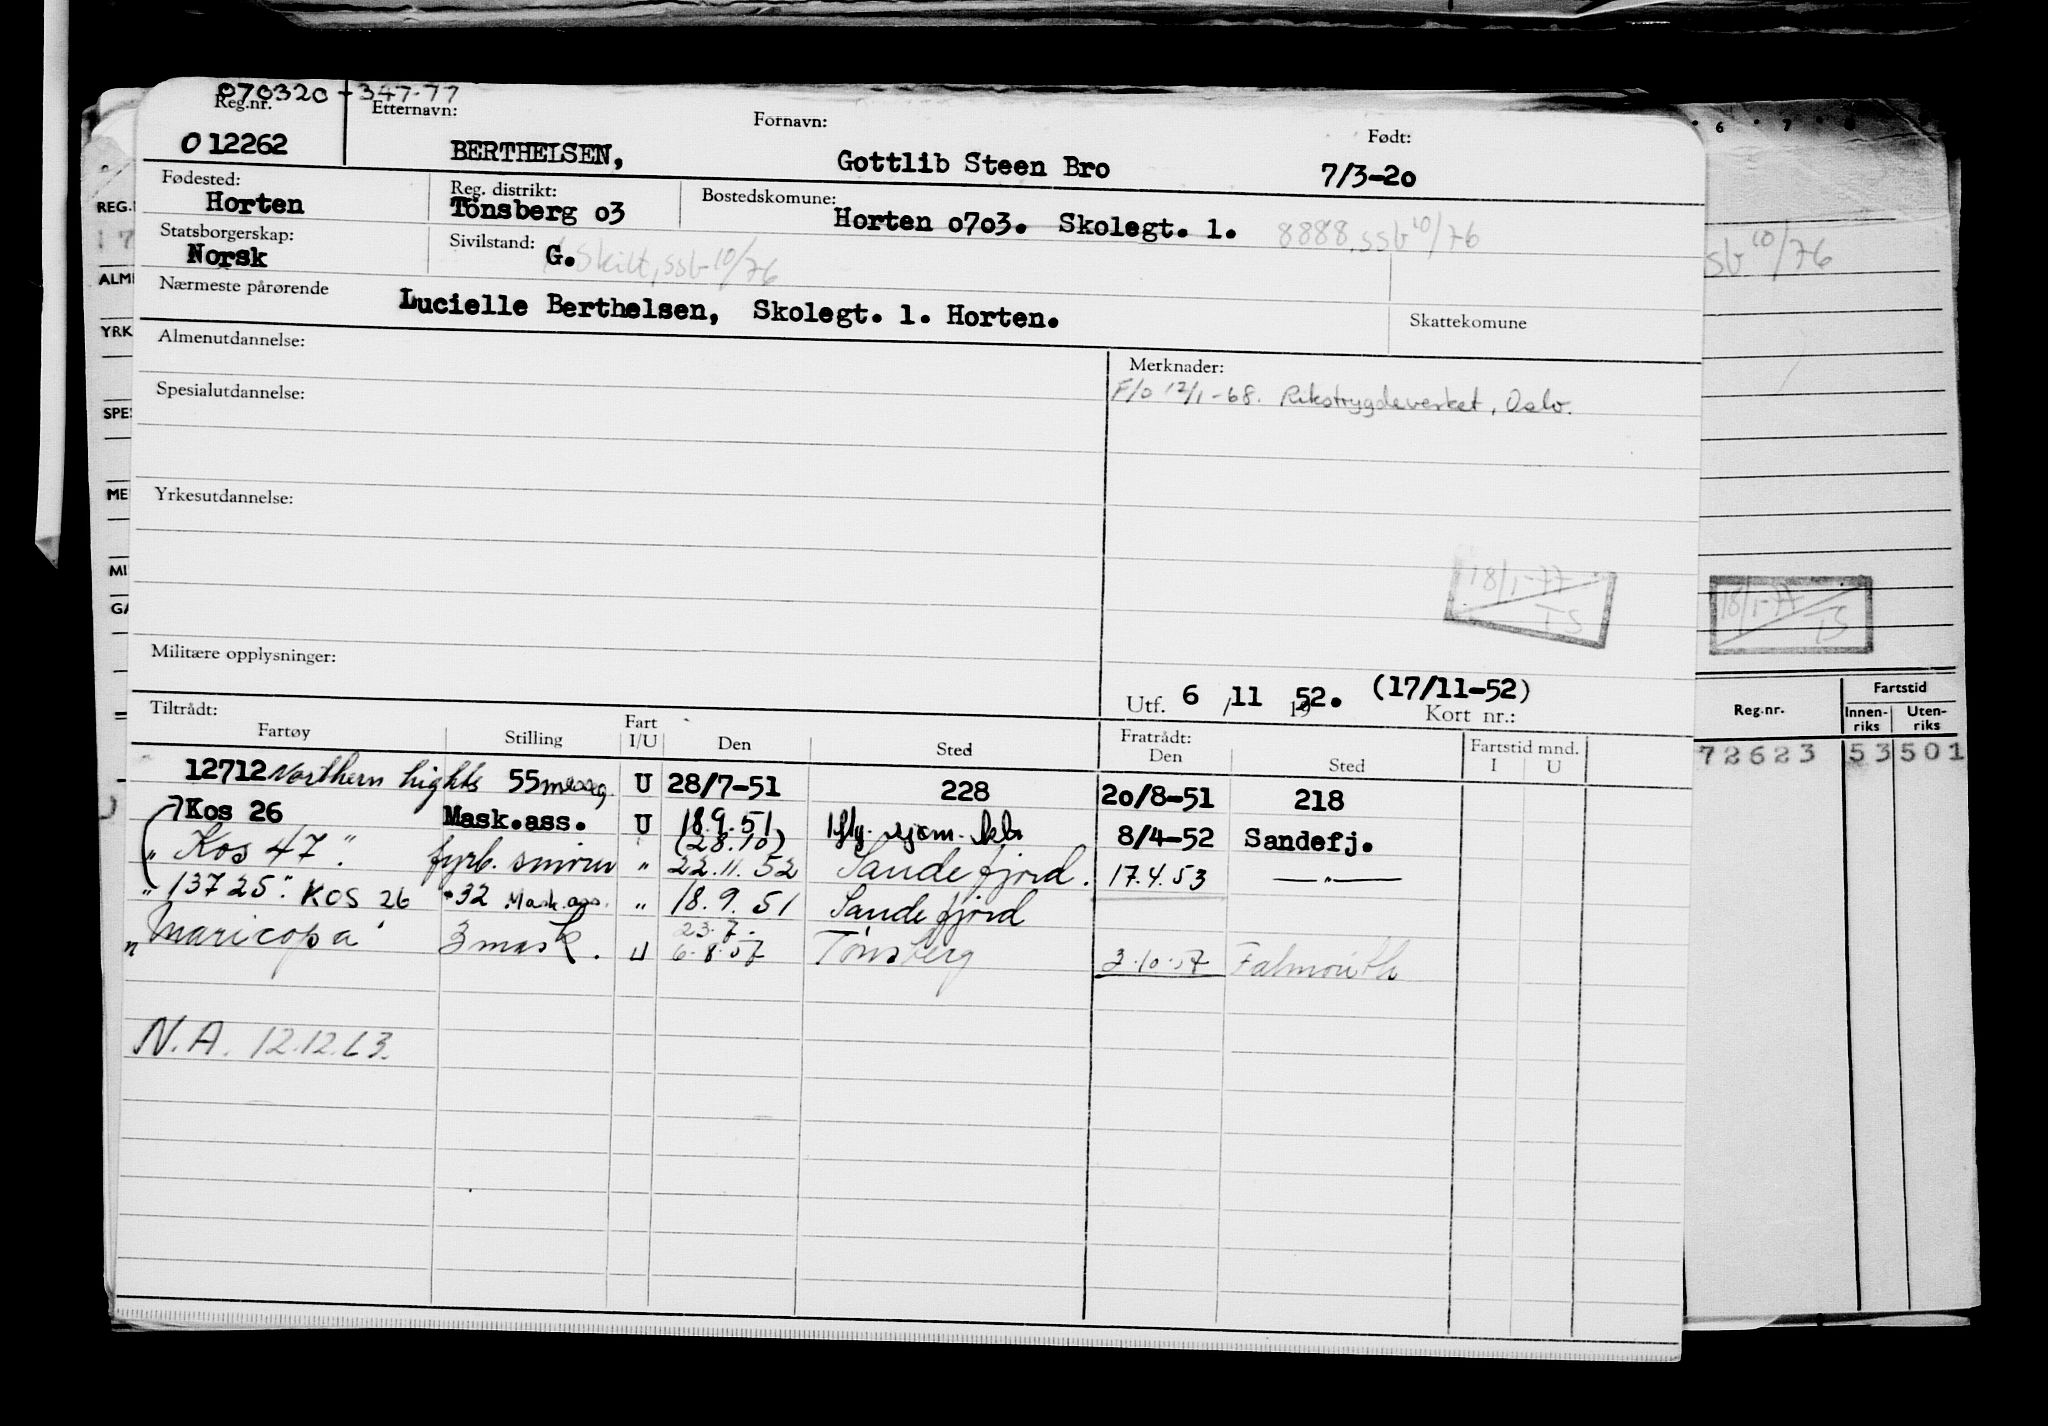 070320-347.77
Reg.nr. Etternavn: Fornavn: Født:
012262 BERTHELSEN, Gottlib Steen Bro 7/3-20
Fødested: Reg. distrikt: Bostedskomune:
Horten Tönsberg 03 Horten 0703. Skolegt. 1. 8888, ssb 10/76
Statsborgerskap: Sivilstand:
Norsk G. Skilt, ssb 10/76
Nærmeste pårørende Lucielle Berthelsen, Skolegt. 1. Horten. Skattekomune
Almenutdannelse: Merknader:
F/o 12/1-68. Rikstrygdeverket, Oslo.
Spesialutdannelse:
Yrkesutdannelse:
18/1-77
TS
Militære opplysninger:
Utf. 6 / 11 1952. (17/11-52) Kort nr.:
Tiltrådt: Fratrådt:
Fartøy Stilling Fart I/U Den Sted Den Sted Fartstid mnd. I U
12712 Northern Lights 55 messg. U 28/7-51 228 20/8-51 218
Kos 26 Mask.ass. U 18.9.51 8/4-52 Sandefj.
(28.10)
" Kos 47" fyrb. smörer " 22.11.52 Sandefjord. 17.4.53 — " —
" 13725" KOS 26 32 Mask.ass. " 18.9.51 Sandefjord
23.7.
" Maricopa" 3 mask. U 6.8.57 Tønsberg 3.10.57 Falmouth
N.A. 12.12.63.
6 7
REG.
ALM
YRK
SPE
ME
MI
GA
sb 10/76
18/1-77
TS
Reg.nr. Fartstid
Innenriks Utenriks
72623 53 501